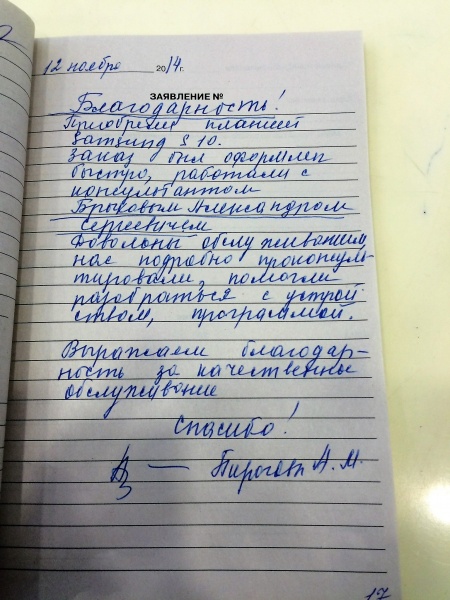 12 ноября 2014г.
ЗАЯВЛЕНИЕ №
Благодарность!
Приобрели планшет
Samsung S 10.
Заказ был оформлен
быстро, работали с
консультантом
Брыковым Александром
Сергеевичем
Довольны обслуживанием
нас подробно проконсуль
тировали, помогли
разобраться с устрой
ством, программой.
Выражаем благодар-
ность за качественные
обслуживание
Спасибо!
— А. М.
17